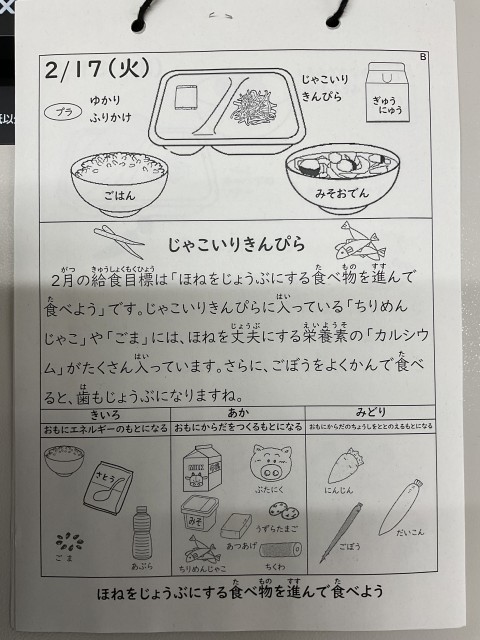 B
2/17(火)
プラ
ゆかり
ふりかけ
じゃこいり
きんぴら
ぎゅう
にゅう
ごはん
みそおでん
じゃこいりきんぴら
がつ きゅうしょくもくひょう た もの すす
2月の給食目標は「ほねをじょうぶにする食べ物を進んで
た はい
食べよう」です。じゃこいりきんぴらに入っている「ちりめん
じょうぶ えいようそ
じゃこ」や「ごま」には、ほねを丈夫にする栄養素の「カルシウ
はい た
ム」がたくさん入っています。さらに、ごぼうをよくかんで食べ
は
ると、歯もじょうぶになりますね。
きいろ
あか
みどり
おもにエネルギーのもとになる
おもにからだをつくるもとになる
おもにからだのちょうしをととのえるもとになる
さとう
ごま
あぶら
MILK
ぶたにく
みそ
うずらたまご
あつあげ
ちりめんじゃこ
ちくわ
にんじん
だいこん
ごぼう
た もの すす た
ほねをじょうぶにする食べ物を進んで食べよう